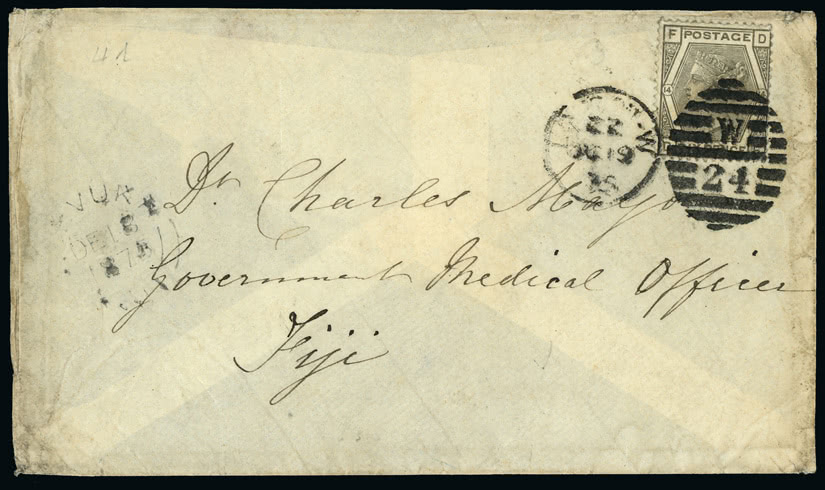 4d
F POSTAGE D
14
LONDON·W
ZZ
OC 19
75
W
24
Dr. Charles Mayo
Government Medical Officer
Fiji
VUKA
DE 18
1875